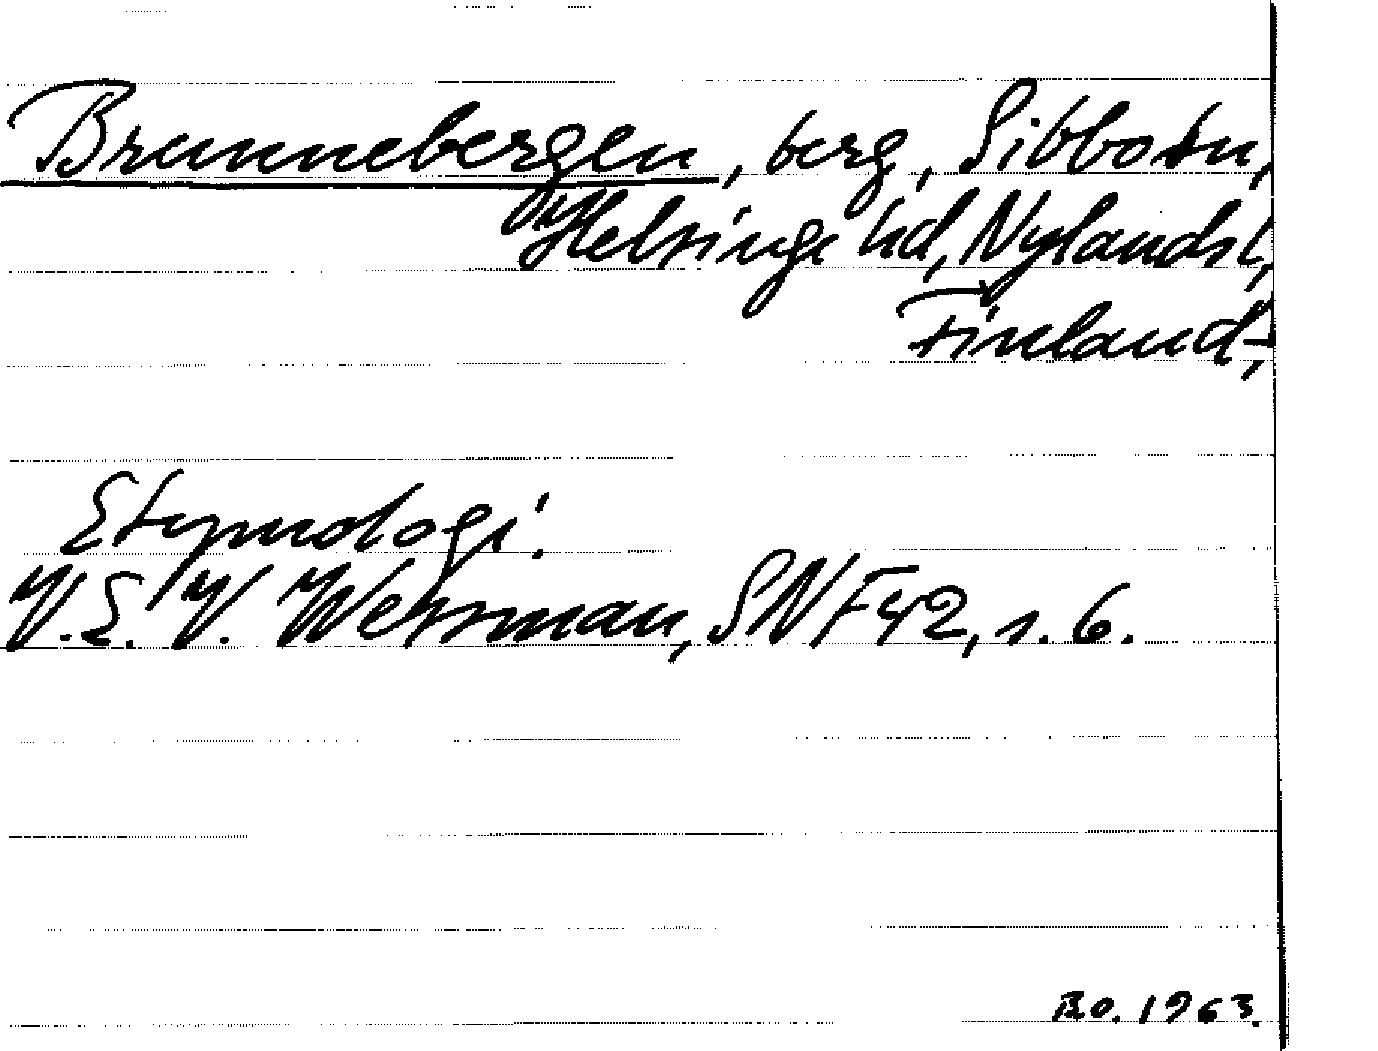 Brunnebergen, berg, Sibbo sn,
Helsinge hd, Nylands l,
Finland,
Etymologi.
V.E.V. Wessman, SNF 42, s. 6.
Bo. 1963.